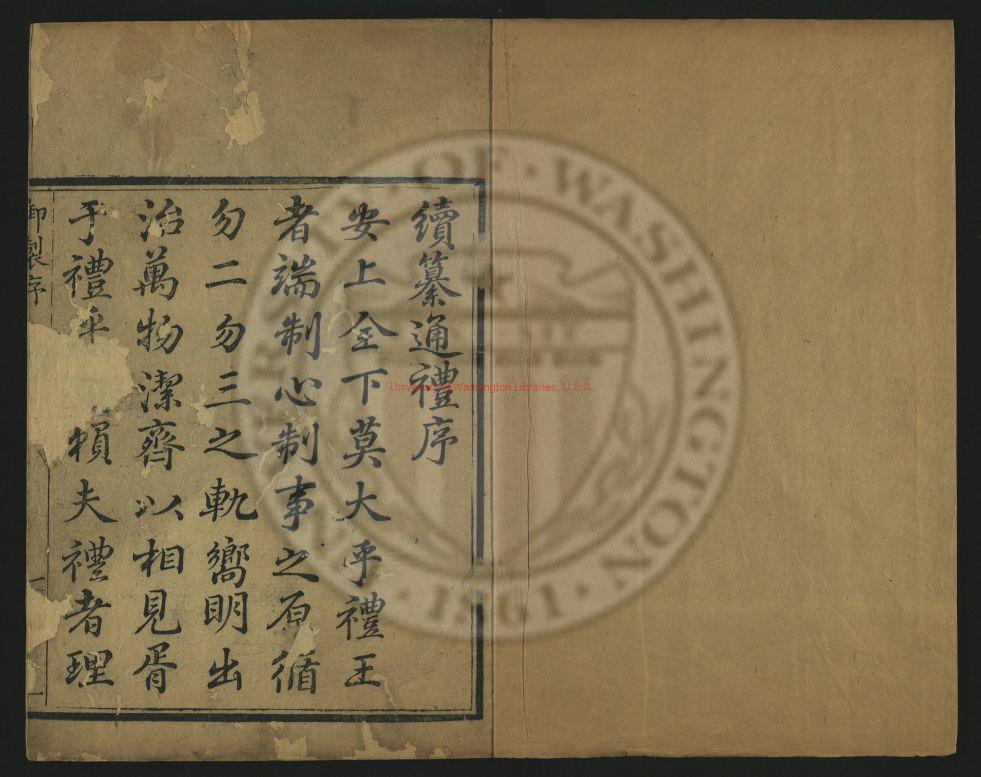 續纂通禮序
安上全下莫大乎禮王
者端制心制事之原循
勿二勿三之軌嚮明出
治萬物潔齊以相見胥
于禮乎賴夫禮者理
御製序
一
University of Washington Libraries, U.S.A.
UNIVERSITY OF WASHINGTON
1861